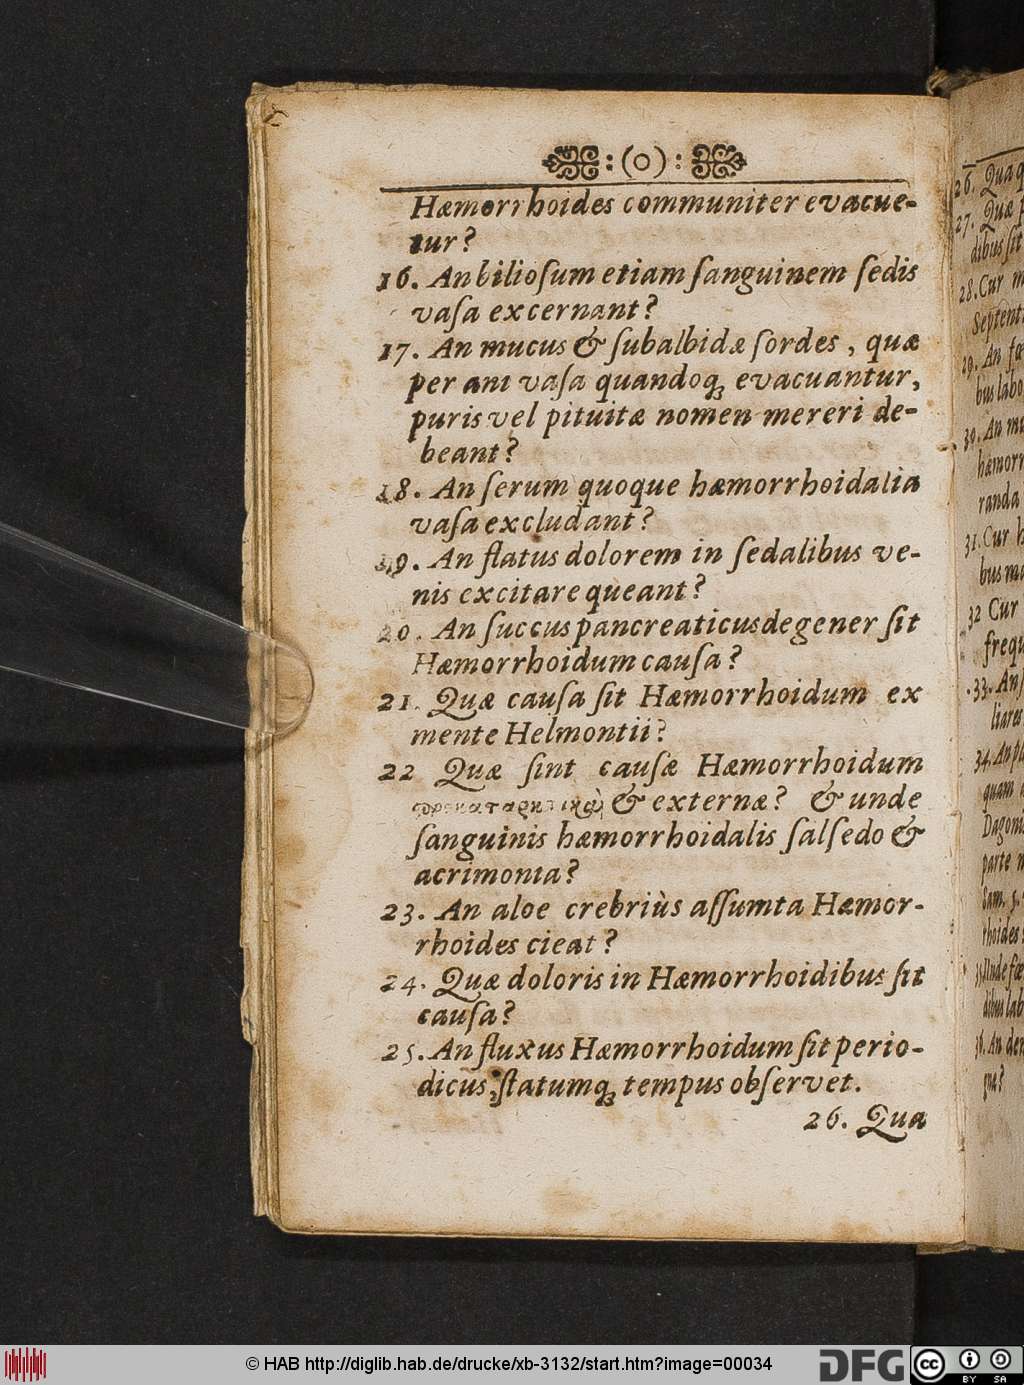 :(o):
Hæmorrhoides communiter evacue-
tur?
16. An biliosum etiam sanguinem sedis
vasa excernant?
17. An mucus & subalbidæ sordes, quæ
per ani vasa quandoq; evacuantur,
puris vel pituitæ nomen mereri de-
beant?
18. An serum quoque hæmorrhoidalia
vasa excludant?
19. An flatus dolorem in sedalibus ve-
nis excitare queant?
20. An succus pancreaticus degener sit
Hæmorrhoidum causa?
21. Quæ causa sit Hæmorrhoidum ex
mente Helmontii?
22 Quæ sint causæ Hæmorrhoidum
& externæ? & unde
sanguinis hæmorrhoidalis salsedo &
acrimonia?
23. An aloe crebriùs assumta Hæmor-
rhoides cieat?
24. Quæ doloris in Hæmorrhoidibus sit
causa?
25. An fluxus Hæmorrhoidum sit perio-
dicus, statumq; tempus observet.
26. Qua
26. Qua
27. Quæ
dibus sit
28. Cur
Septent
29. An
bus labo
30. An mu
hæmorr
randa
31. Cur
bus
32 Cur
frequ
33. An
liares
34. An
quam
parte
Sam. 5.
rhoides
36. An
© HAB http://diglib.hab.de/drucke/xb-3132/start.htm?image=00034
DFG
cc BY SA